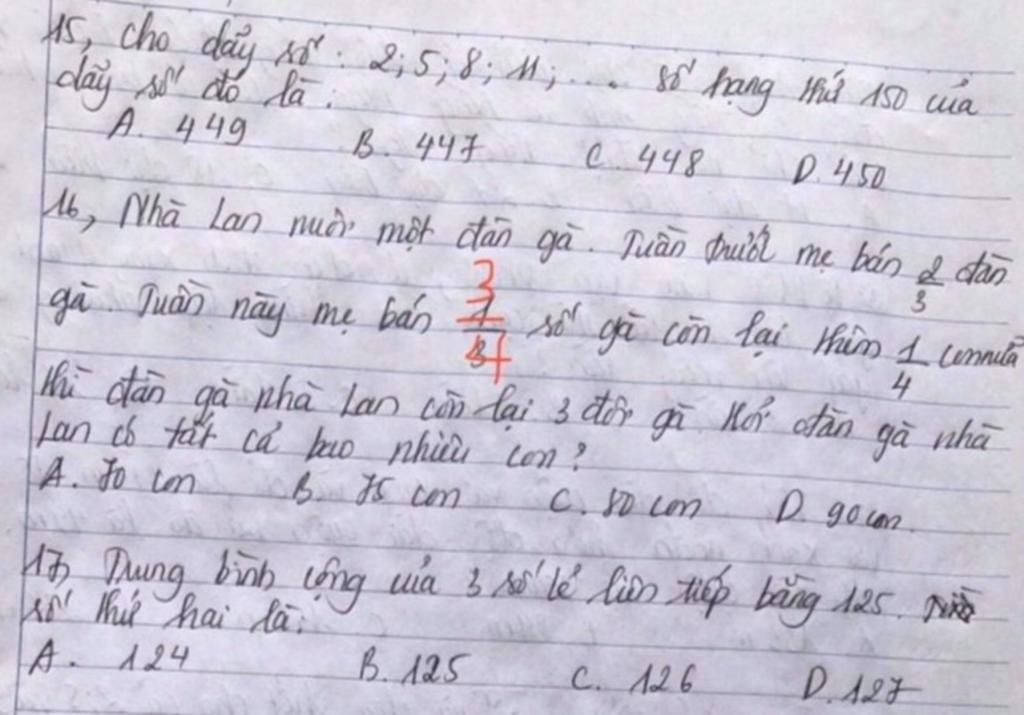 15, Cho dãy số : 2; 5; 8; 11; .... số hạng thứ 150 của
dãy số đó là :
A. 449 B. 447 C. 448 D. 450
16, Nhà Lan nuôi một đàn gà. Tuần trước mẹ bán 2/3 đàn
gà. Tuần này mẹ bán 3/4 số gà còn lại thêm 1/4 con nữa
thì đàn gà nhà Lan còn lại 3 đôi gà Hỏi đàn gà nhà
Lan có tất cả bao nhiêu con?
A. 70 con B. 75 con C. 80 con D. 90 con.
17, Trung bình cộng của 3 số lẻ liên tiếp bằng 125.
số thứ hai là:
A. 124 B. 125 C. 126 D. 127